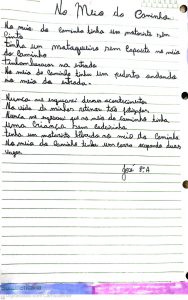 No Meio do Caminho
No meio do caminho tinha um motorista sem
Cinto
tinha um motoqueiro sem capacete no meio
do caminho
tinham buracos na estrada
No meio do caminho tinha um pedestre andando
no meio da estrada.
Nunca me esquecerei desse acontecimento
Na vida de minhas retinas tão fatigadas
Nunca me esquecerei que no meio do caminho tinha
uma criança sem cadeirinha
tinha um motorista bêbado no meio do caminho
No meio do caminho tinha um carro ocupando duas
vagas
José 8º A